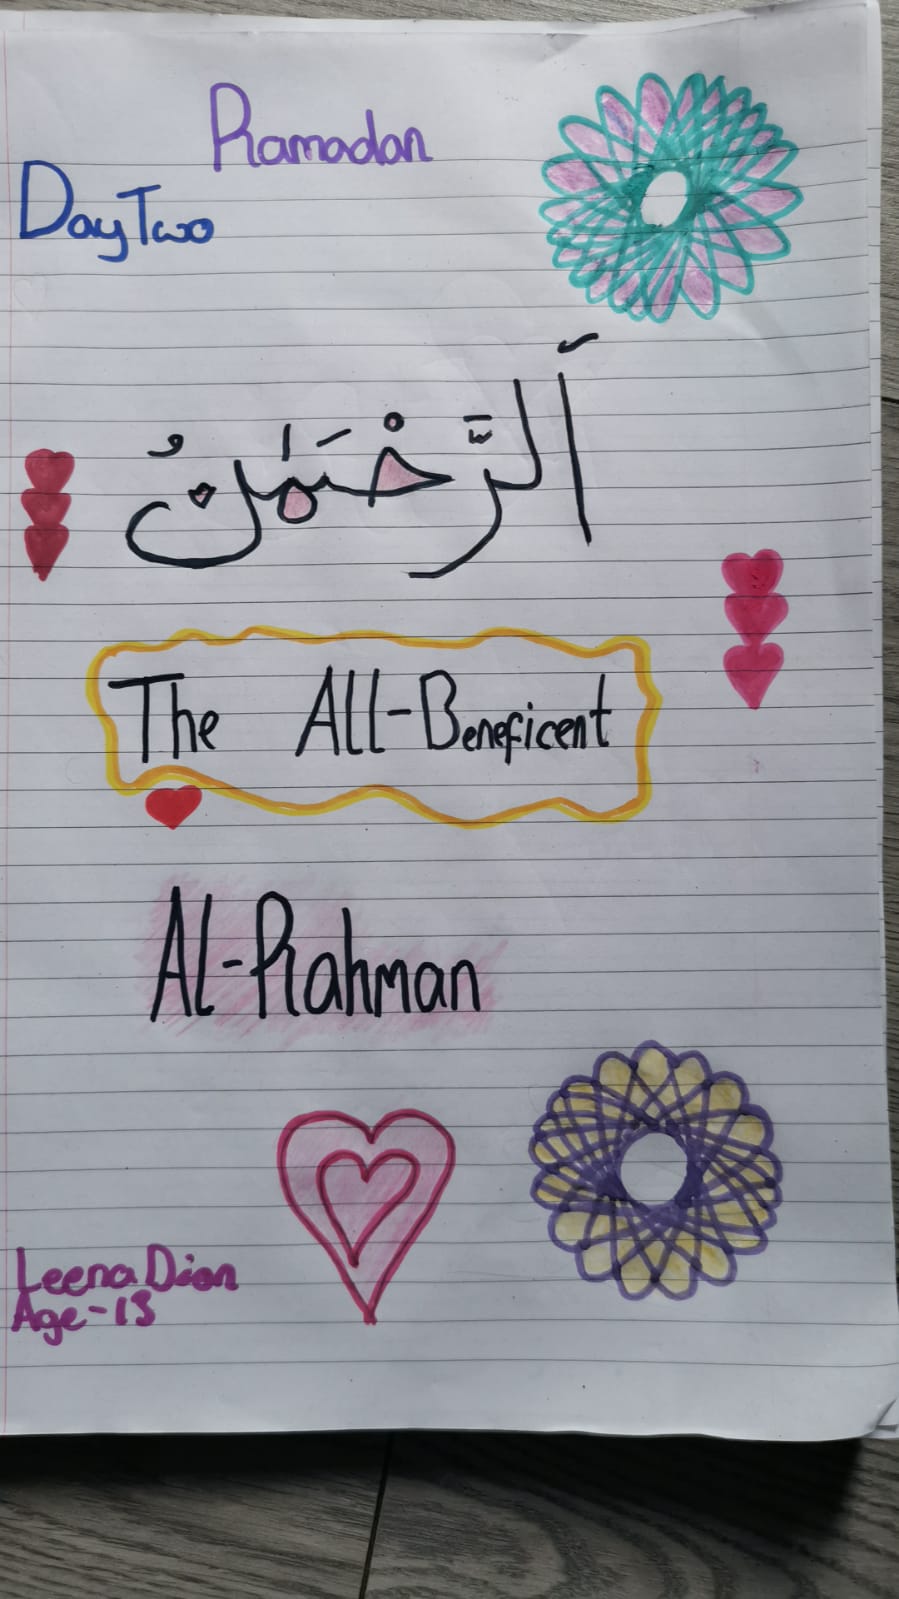 Ramadan
Day Two
اَلرَّحْمَٰنُ
The All-Beneficent
Al-Rahman
Leena Dian
Age-13